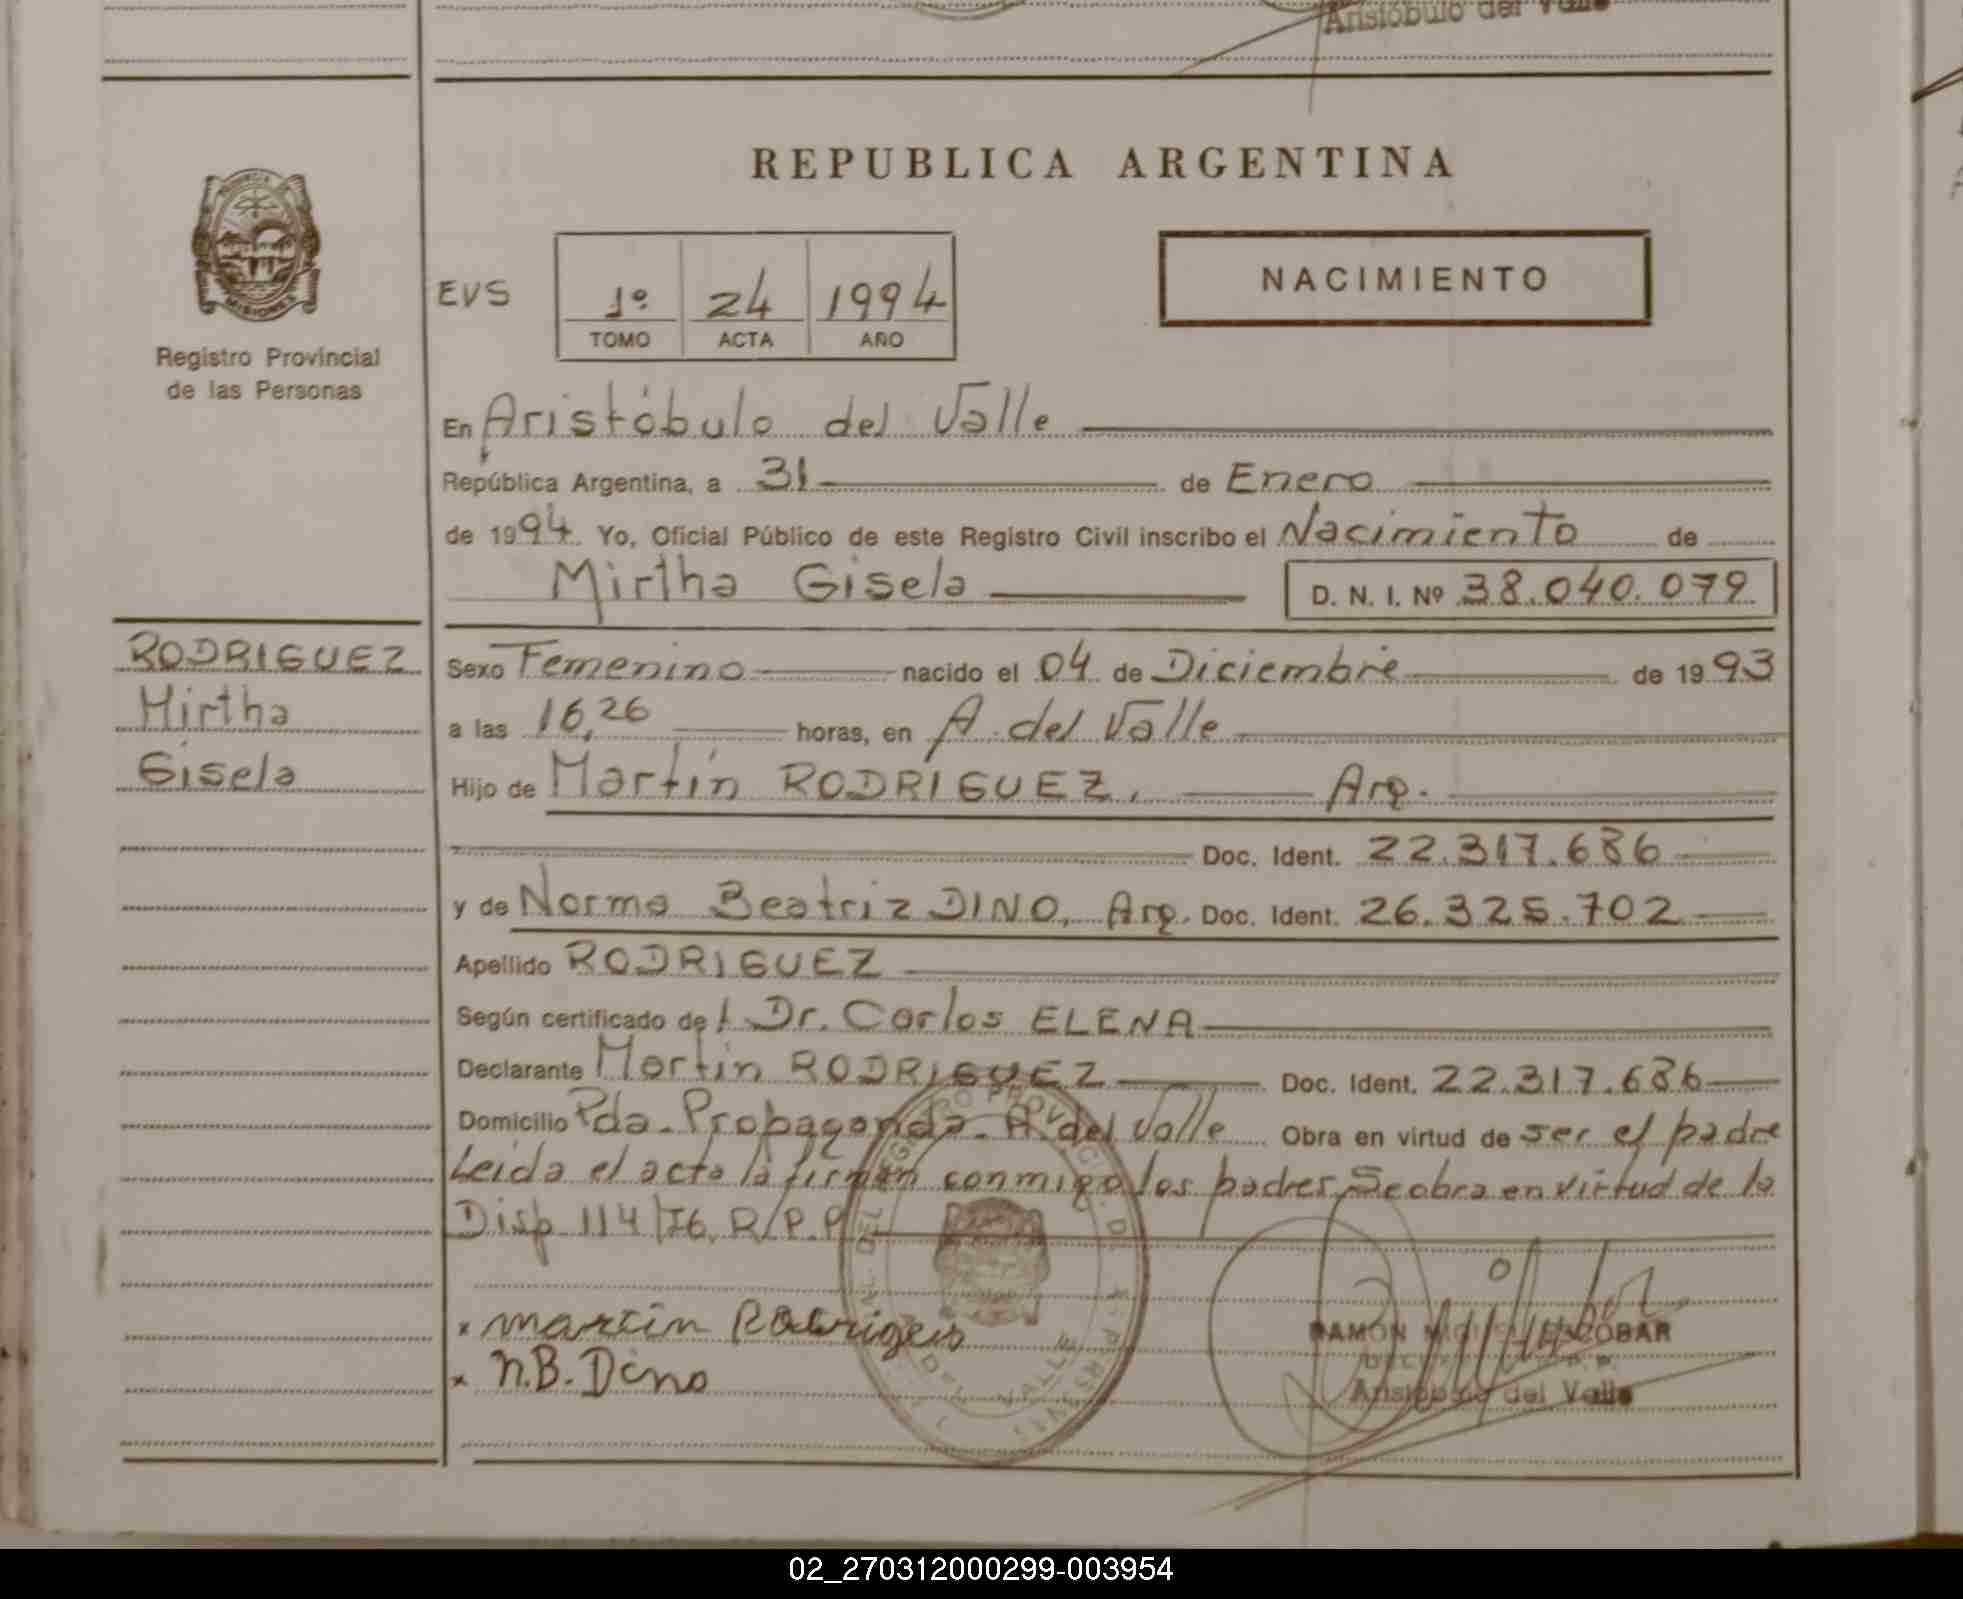 Aristóbulo del Valle
REPUBLICA ARGENTINA
PROVINCIA DE
MISIONES
Registro Provincial
de las Personas
EVS
1º 24 1994
TOMO ACTA AÑO
NACIMIENTO
En Aristóbulo del Valle
República Argentina, a 31 de Enero
de 1994 Yo, Oficial Público de este Registro Civil inscribo el Nacimiento de
Mirtha Gisela D. N. I. Nº 38.040.079
RODRIGUEZ
Mirtha
Gisela
Sexo Femenino nacido el 04 de Diciembre de 1993
a las 16,26 horas, en A. del Valle
Hijo de Martín RODRIGUEZ, Arg.
Doc. Ident. 22.317.686
y de Norma Beatriz DINO, Arg. Doc. Ident. 26.325.702
Apellido RODRIGUEZ
Según certificado del Dr. Carlos ELENA
Declarante Martín RODRIGUEZ Doc. Ident. 22.317.686
Domicilio Pda. Propaganda - A. del Valle Obra en virtud de ser el padre
Leida el acta la firman conmigo los padres, Se obra en virtud de la
Disp 114/76, R/P.P.
x martin Rodrigues
x N.B. Dino
DEL VALLE
RAMON MIGUEL ESCOBAR
Aristóbulo del Valle
02_270312000299-003954